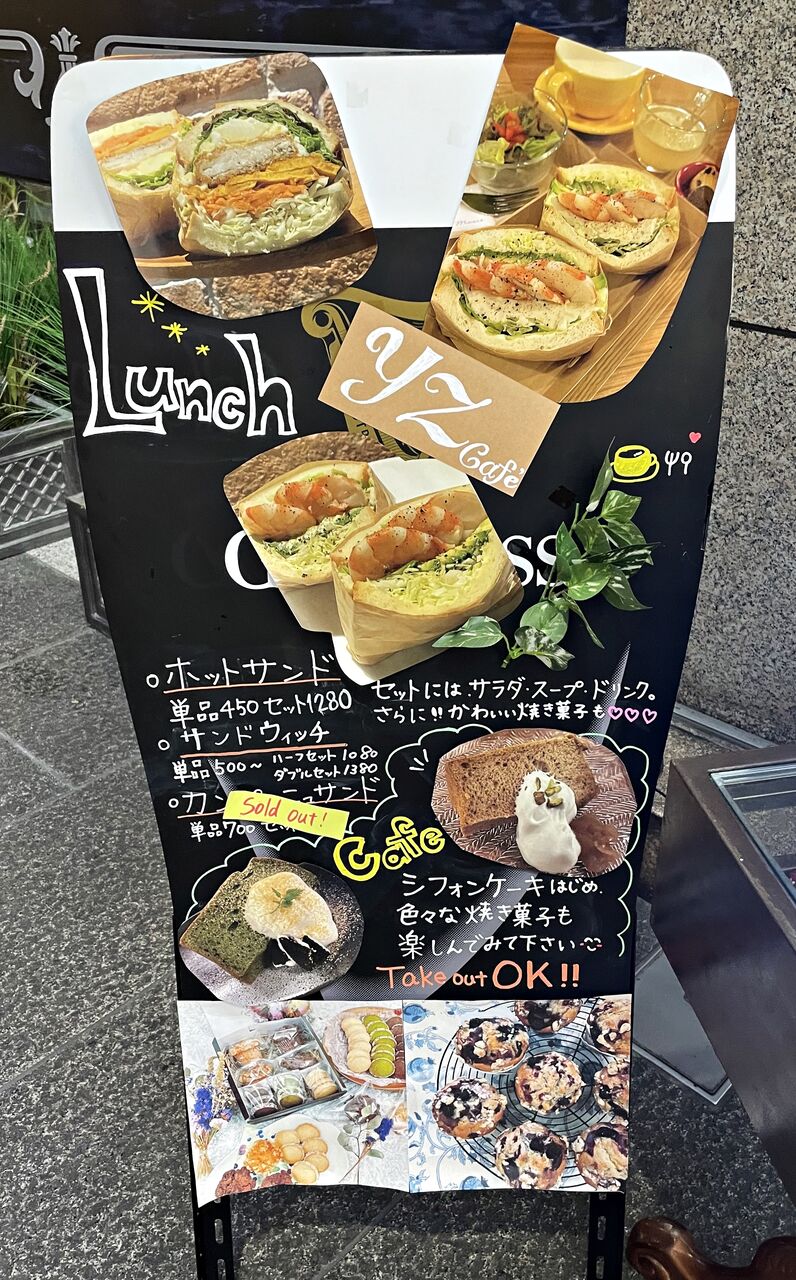 Lunch
YZ
Cafe
ホットサンド
単品450 セット1280
サンドウィッチ
単品500～ ハーフセット1080
ダブルセット1380
単品700
Sold out!
セットには サラダ・スープ・ドリンク。
さらに!! かわいい焼き菓子も♡♡♡
Cafe
シフォンケーキはじめ、
色々な焼き菓子も
楽しんでみて下さい
Take out OK!!